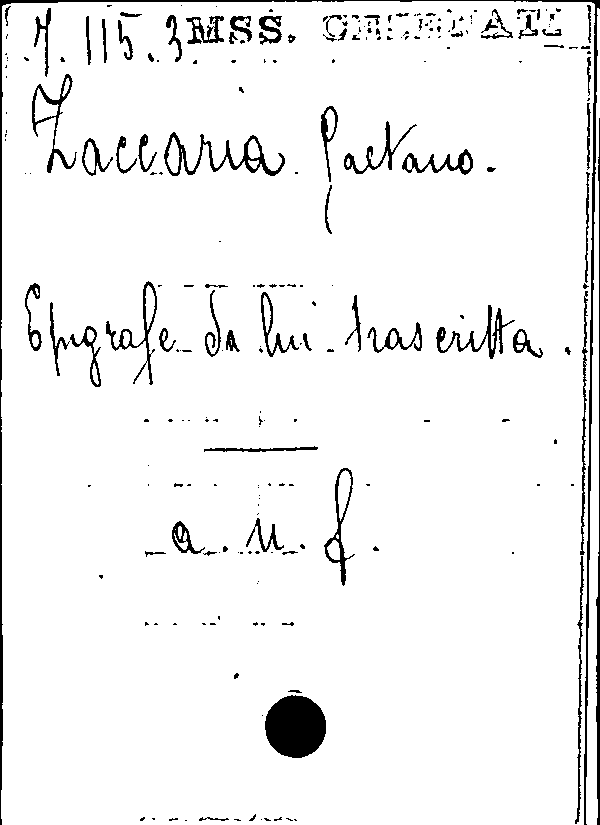 7.115.3 MSS. CESENATI
Zaccaria Gaetano.
Epigrafe da lui trascritta.
a. n. f.